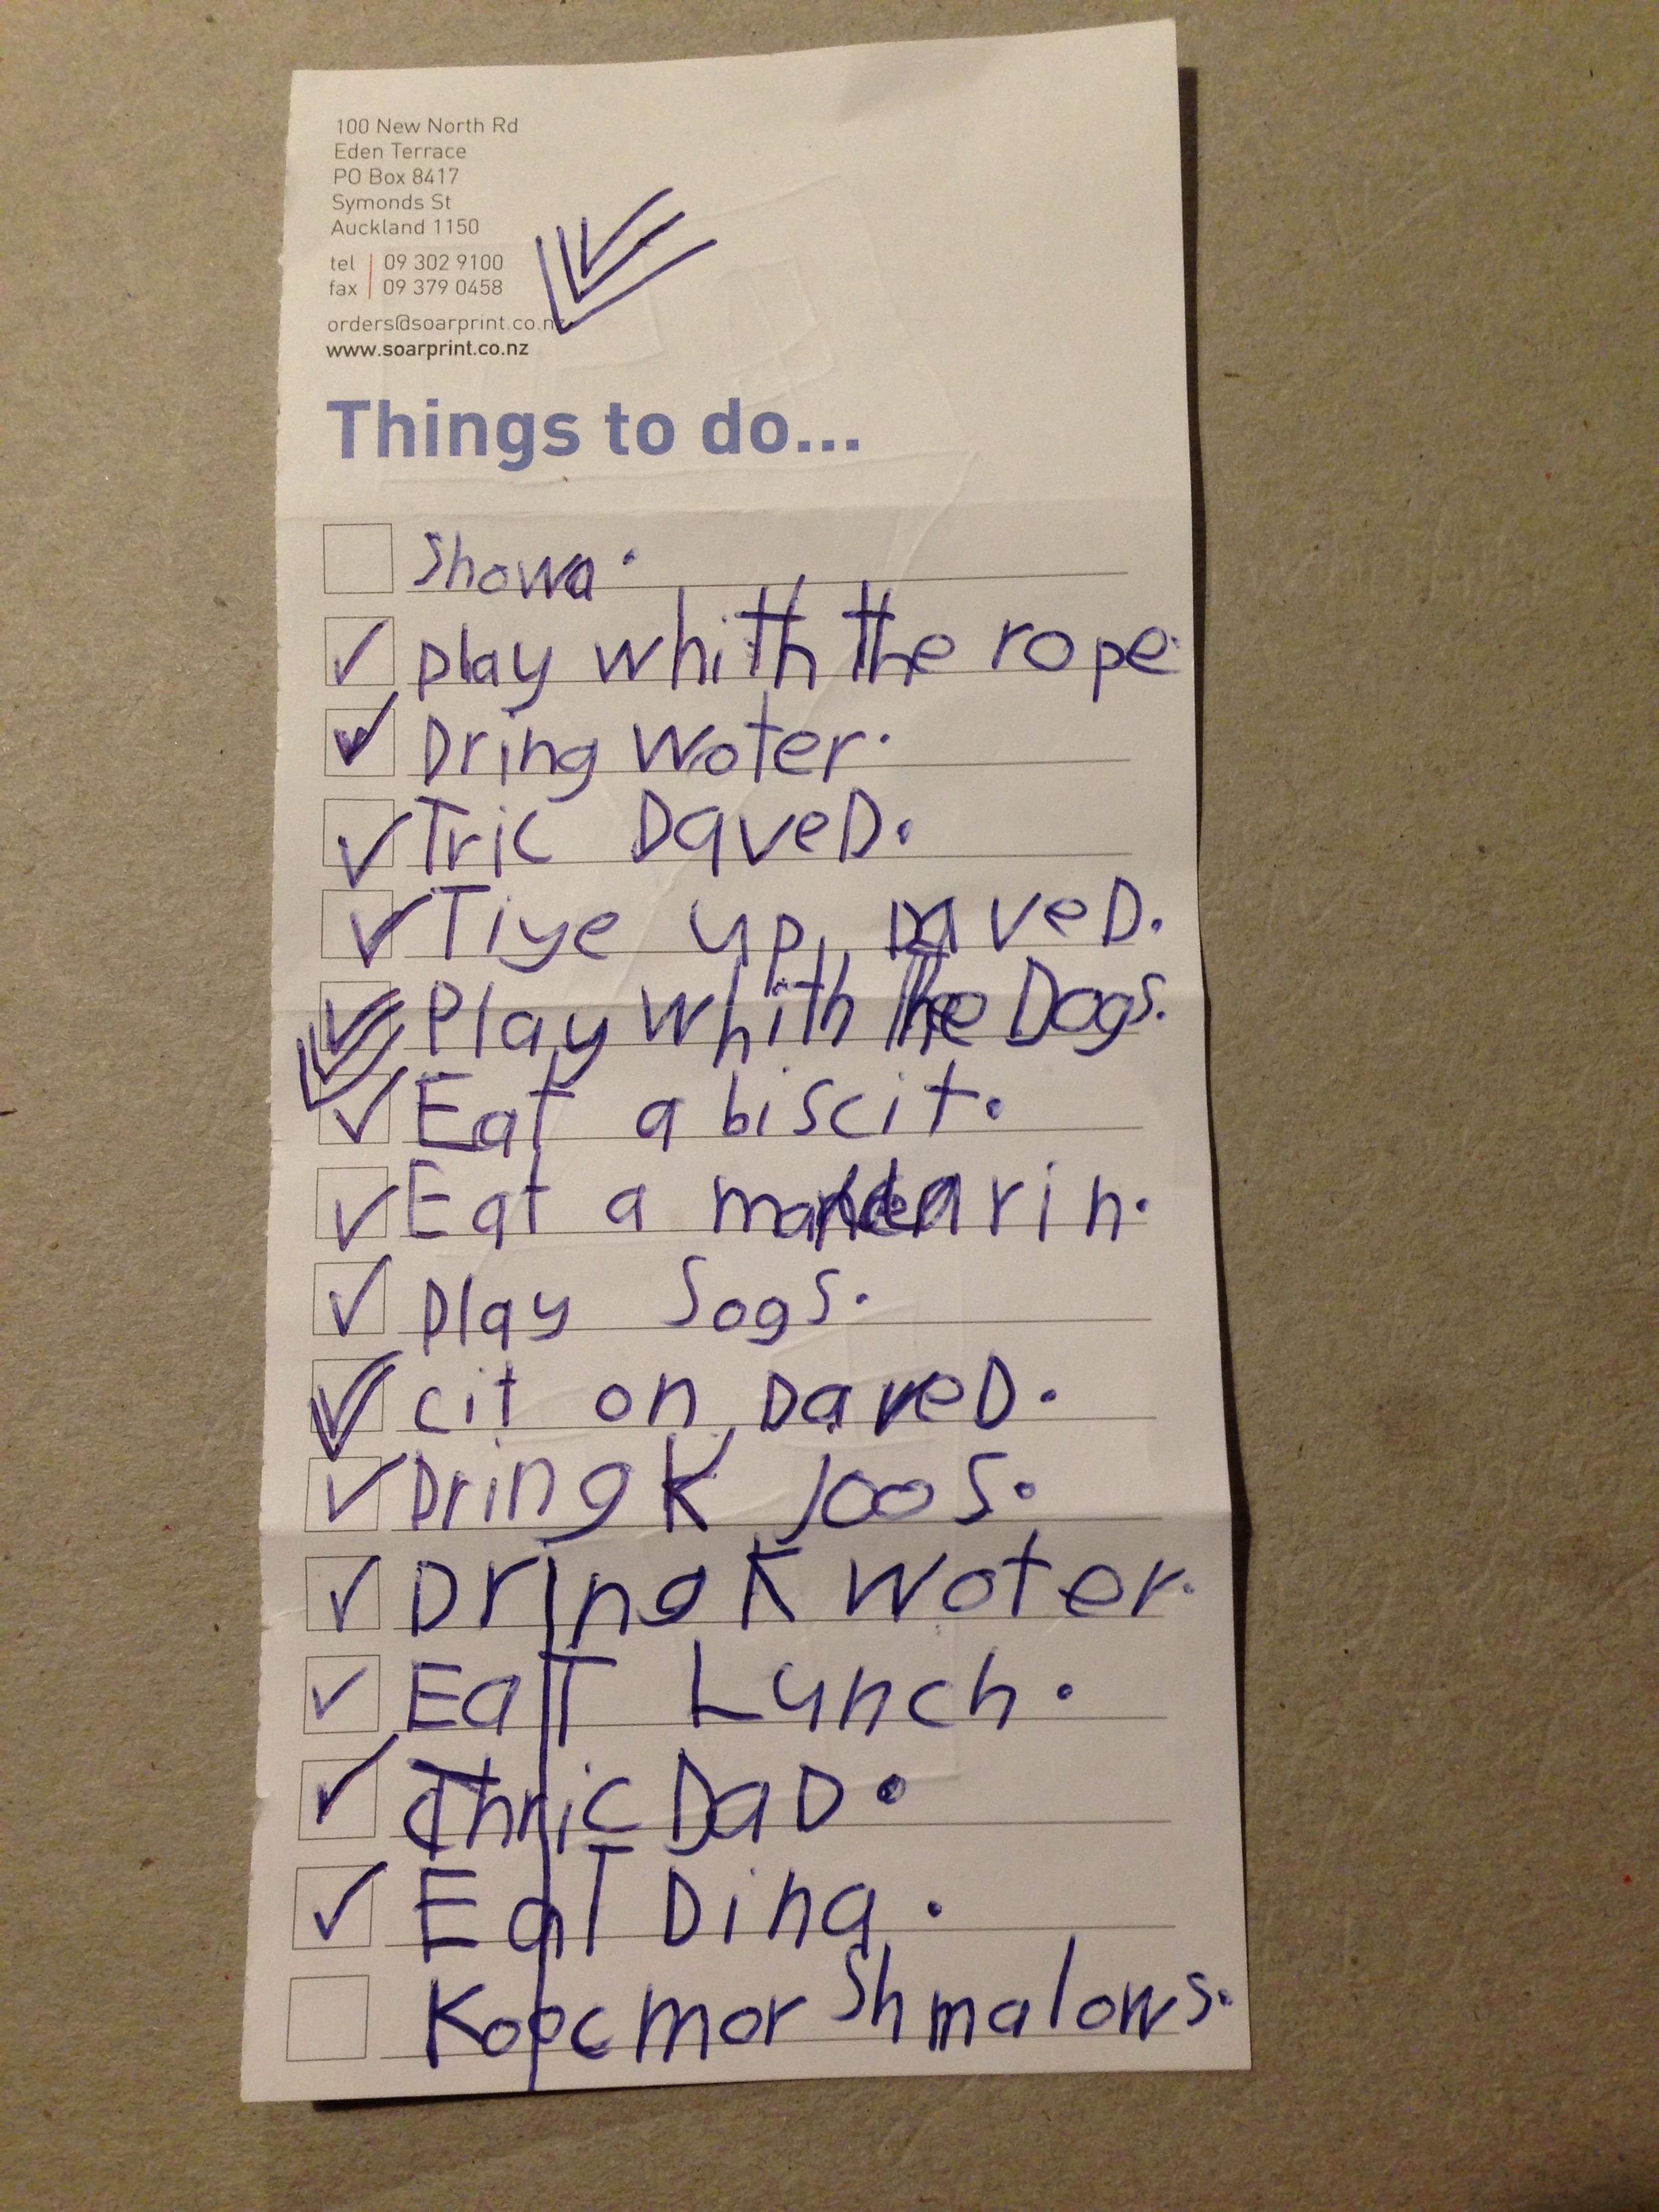 100 New North Rd
Eden Terrace
PO Box 8417
Symonds St
Auckland 1150
tel | 09 302 9100
fax | 09 379 0458
orders@soarprint.co.nz
www.soarprint.co.nz
Things to do...
Showa.
play whith the rope.
Dring Woter.
Tric DaveD.
Tiye up DaveD.
Play whith the Dogs.
Eat a biscit.
Eat a mandarin.
play Sogs.
cit on DaveD.
DringK joos.
DringK woter.
EaT Lunch.
Thric DaD.
EaT Dina.
Kopc mor Shmalows.